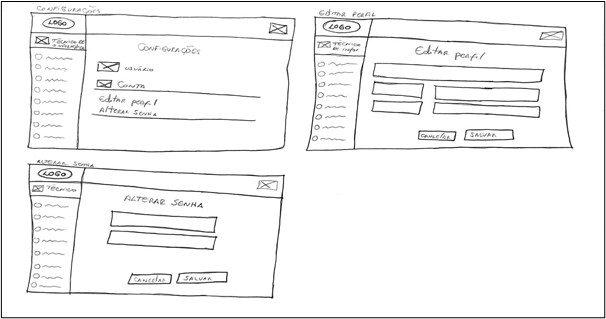 CONFIGURAÇÕES
LOGO
TÉCNICO DE
CONFIGURAÇÕES
USUÁRIO
CONTA
Editar perfil
ALTERAR SENHA
EDITAR PERFIL
LOGO
TÉCNICO
DE INFOR
Editar perfil
CANCELAR
SALVAR
ALTERAR SENHA
LOGO
TÉCNICO
ALTERAR SENHA
CANCELAR
SALVAR